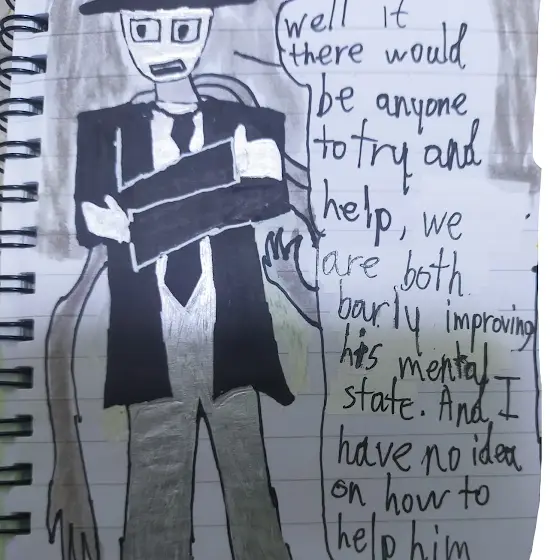 well it
there would
be anyone
to try and
help, we
are both
barly improving
his mental
state. And I
have no idea
on how to
help him